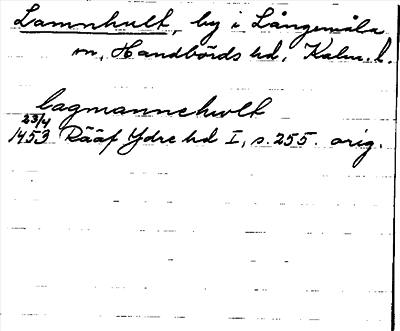 Lamnhult, by i Långemåla
sn, Handbörds hd, Kalm. l.
lagmannehult
23/4
1453 Rääf Ydre hd I, s. 255. orig.